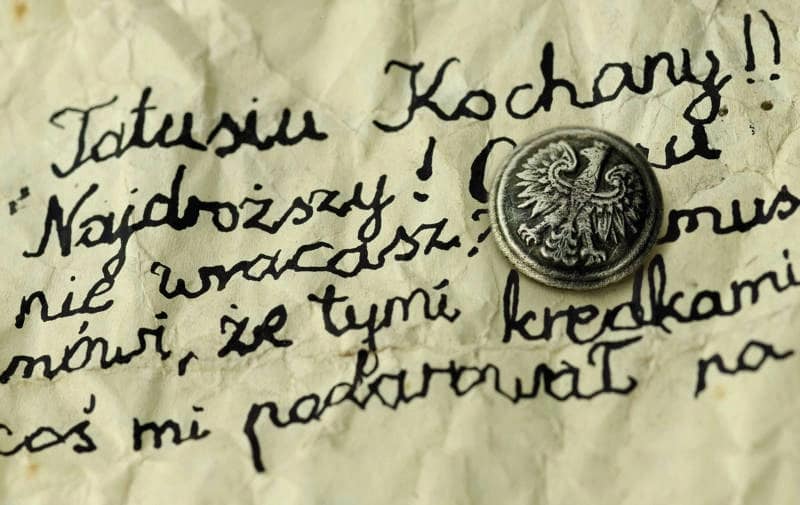 Tatusiu Kochany!!
Najdroższy!
nie wracasz?
mówi, że tymi kredkami
coś mi podarował na